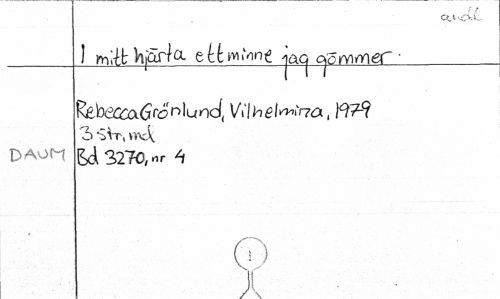 andl
I mitt hjärta ett minne jag gömmer.
Rebecca Grönlund, Vilhelmina, 1979
3 str, md
DAUM Bd 3270, nr 4